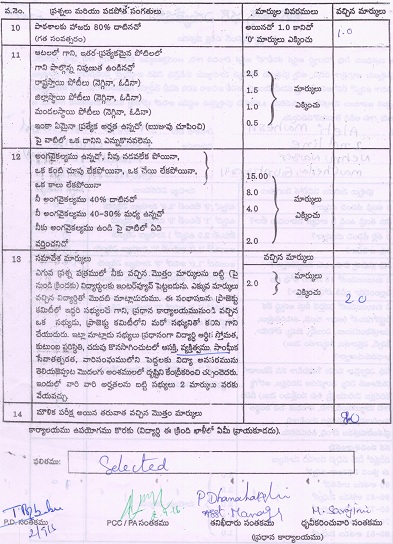 వ.నెం. ప్రశ్నలు మరియు పరపోత సంగతులు మార్కుల వివరములు వచ్చిన మార్కులు
10 పాఠశాలకు హాజరు 80% దాటినచో అయినచో 1.0 కానిచో 1.0
(గత సంవత్సరం) '0' మార్కులు ఎక్కించు
11 ఆటలలో గాని, ఇతర ప్రత్యేకమైన పోటీలలో
గాని పాల్గొన్న నిపుణత ఉండినచో
రాష్ట్రస్థాయి పోటీలు (నెగ్గినా, ఓడినా) 2.5
జిల్లాస్థాయి పోటీలు (నెగ్గినా, ఓడినా) 1.5 మార్కులు
మండలస్థాయి పోటీలు (నెగ్గినా, ఓడినా) 1.0 ఎక్కించు
ఇంకా ఏమైనా ప్రత్యేక అర్హత ఉన్నచో (ఋజువు చూపించి) 0.5
పై వాటిలో ఒక దానిని ఎన్నుకొనవలెను.
12 అంగవైకల్యము ఉన్నచో, నీవు నడవలేక పోయినా,
ఒక కంటి చూపు లేకపోయినా, ఒక చేయి లేకపోయినా, 15.00
ఒక కాలు లేకపోయినా 8.0 మార్కులు
నీ అంగవైకల్యము 40% దాటినచో 4.0
నీ అంగవైకల్యము 40-30% మధ్య ఉన్నచో ఎక్కించు
నీకు అంగవైకల్యము ఉండి పై వాటిలో ఏది 2.0
వర్తించనిచో
13 సమావేశ మార్కులు వచ్చిన మార్కులు
ఎగువ ప్రశ్న పత్రములో నీకు వచ్చిన మొత్తం మార్కులను బట్టి (పై 2.0 మార్కులు
నుండి క్రిందకు) విద్యార్థులకు ఇంటర్వ్యూవ్ పెట్టబడును. ఎక్కువ మార్కులు ఎక్కించు
వచ్చిన విద్యార్థితో మొదటి మాట్లాడుదుము. ఈ సంభాషణను ప్రాజెక్టు 2.0
కమిటీలో ఇద్దరి సభ్యులచే గాని, ప్రధాన కార్యాలయమునుండి వచ్చిన
ఒక సభ్యుడు, ప్రాజెక్టు కమిటీలోని మరో సభ్యునితో కలిసి గాని
చేయుదురు. ఇట్లా మాట్లాడు సభ్యులు ప్రధానంగా విద్యార్థి ఆర్థిక స్తోమత,
కుటుంబ స్థితిగతి, చదువు కొనసాగించుటలో ఆసక్తి, వ్యక్తిత్వము, సాంఘిక
సేవాతత్వరత, వారిసంఘములోని పెద్దలకు విద్యా అవసరమును
తెలియజెప్పుట మొదలగు అంశములలో దృష్టిని కేంద్రీకరించి చర్చించెదరు.
ఇందులో వారి వారి అర్హతలను బట్టి సభ్యులు 2 మార్కులు వరకు
వేయవచ్చు.
14 మౌళిక పరీక్ష అయిన తరువాత వచ్చిన మొత్తం మార్కులు
కార్యాలయం ఉపయోగము కొరకు (విద్యార్థి ఈ క్రింది ఖాళీలో ఏమీ వ్రాయకూడదు).
ఫలితము: Selected
P Dhanalakshmi
Asst Manager M. Sarojini
P.D. సంతకము PCC / PA సంతకము తనిఖీదారు సంతకము ధృవీకరించువారి సంతకము
(ప్రధాన కార్యాలయం)